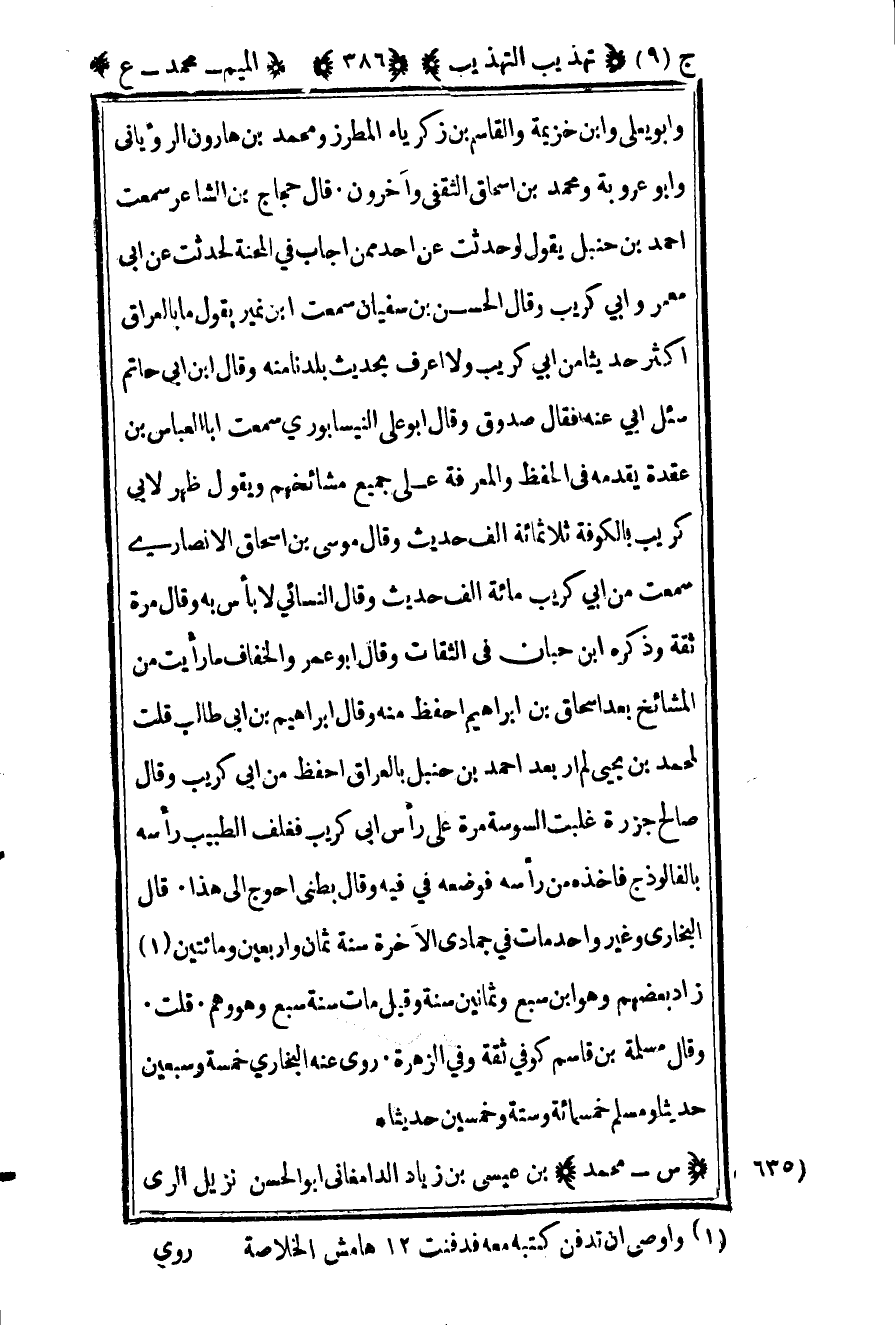 ج (٩) ﴿ تهذيب التهذيب ﴾ ﴿٣٨٦﴾ ﴿ الميم ـ محمد ـ ع ﴾
وابويعلى وابن خزيمة والقاسم بن زكرياء المطرز ومحمد بن هارون الرؤيانى
وابو عروبة ومحمد بن اسحاق الثقفى وآخرون ٠ قال حجاج بن الشاعر سمعت
احمد بن حنبل يقول لوحدثت عن احد ممن اجاب في المحنة لحدثت عن ابى
معمر وابي كريب وقال الحسن بن سفيان سمعت ابن نمير يقول مابالعراق
اكثر حديثا من ابي كريب ولا اعرف بحديث بلدنا منه وقال ابن ابى حاتم
سئل ابي عنه فقال صدوق وقال ابوعلى النيسابوري سمعت ابا العباس بن
عقدة يقدمه فى الحفظ والمعرفة على جميع مشائخهم ويقول ظهر لابي
كريب بالكوفة ثلاثمائة الف حديث وقال موسى بن اسحاق الانصاري
سمعت من ابي كريب مائة الف حديث وقال النسائي لا بأس به وقال مرة
ثقة وذكره ابن حبان فى الثقات وقال ابو عمر والخفاف مارأيت من
المشائخ بعد اسحاق بن ابراهيم احفظ منه وقال ابراهيم بن ابى طالب قلت
لمحمد بن يحيى لم ار بعد احمد بن حنبل بالعراق احفظ من ابى كريب وقال
صالح جزرة غلبت السوسة مرة على رأس ابى كريب فغلف الطبيب رأسه
بالفالوذج فاخذه من رأسه فوضعه في فيه وقال بطنى احوج الى هذا ٠ قال
البخارى وغير واحد مات في جمادى الآخرة سنة ثمان واربعين ومائتين (١)
زاد بعضهم وهو ابن سبع وثمانين سنة وقيل مات سنة سبع وهو وهم ٠ قلت ٠
وقال مسلمة بن قاسم كوفي ثقة وفي الزهرة ٠ روى عنه البخاري خمسة وسبعين
حديثا ومسلم خمسمائة وستة وخمسين حديثا ٠
(٦٣٥ ﴿ س ـ محمد ﴾ بن عيسى بن زياد الدامغانى ابوالحسن نزيل الرى
(١) واوصى ان تدفن كتبه معه فدفنت ١٢ هامش الخلاصة روي